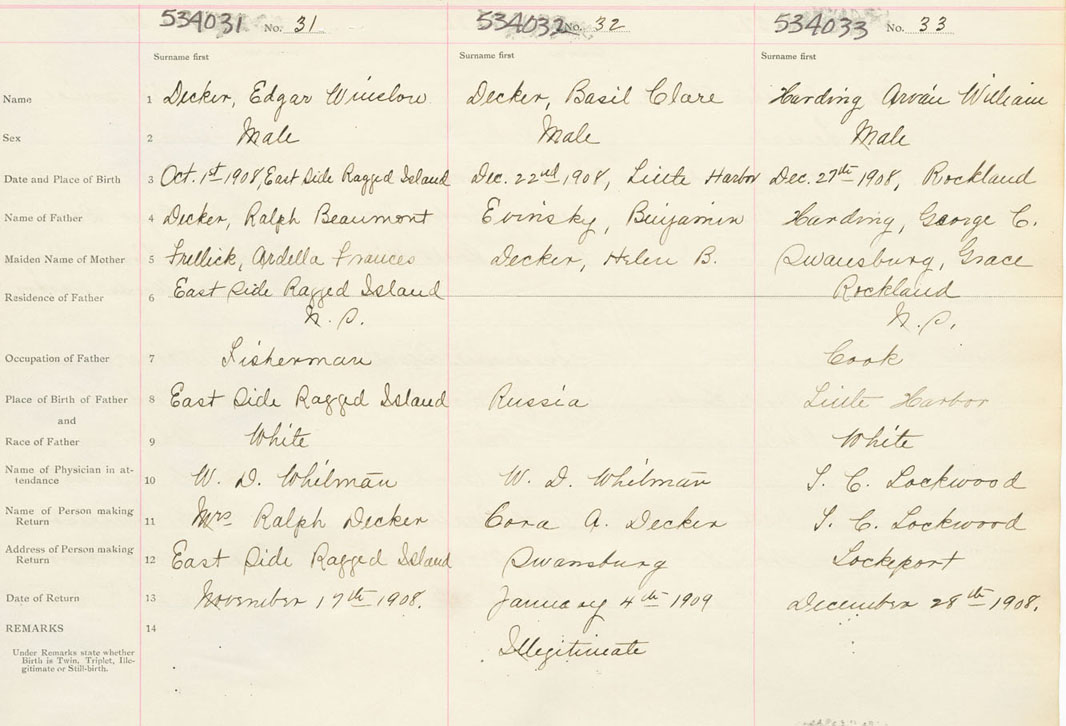 534031 No. 31 534032 No. 32 534033 No. 33
Surname first Surname first Surname first
Name 1 Decker, Edgar Winslow Decker, Basil Clare Harding Arvan William
Sex 2 Male Male Male
Date and Place of Birth 3 Oct. 1st 1908, East Side Ragged Island Dec. 22nd 1908, Little Harbor Dec. 27th 1908, Rockland
Name of Father 4 Decker, Ralph Beaumont Evinsky, Binjamin Harding, George C.
Maiden Name of Mother 5 Frellick, Ardella Frances Decker, Helen B. Swansburg, Grace
Residence of Father 6 East Side Ragged Island Rockland
N. S. N. S.
Occupation of Father 7 Fisherman Cook
Place of Birth of Father 8 East Side Ragged Island Russia Little Harbor
and
Race of Father 9 White White
Name of Physician in at-
tendance 10 W. D. Whitman W. D. Whitman S. C. Lockwood
Name of Person making
Return 11 Mrs Ralph Decker Cora A. Decker S. C. Lockwood
Address of Person making
Return 12 East Side Ragged Island Swansburg Lockeport
Date of Return 13 November 17th 1908. January 4th 1909 December 28th 1908.
REMARKS 14
Illegitimate
Under Remarks state whether
Birth is Twin, Triplet, Ille-
gitimate or Still-birth.